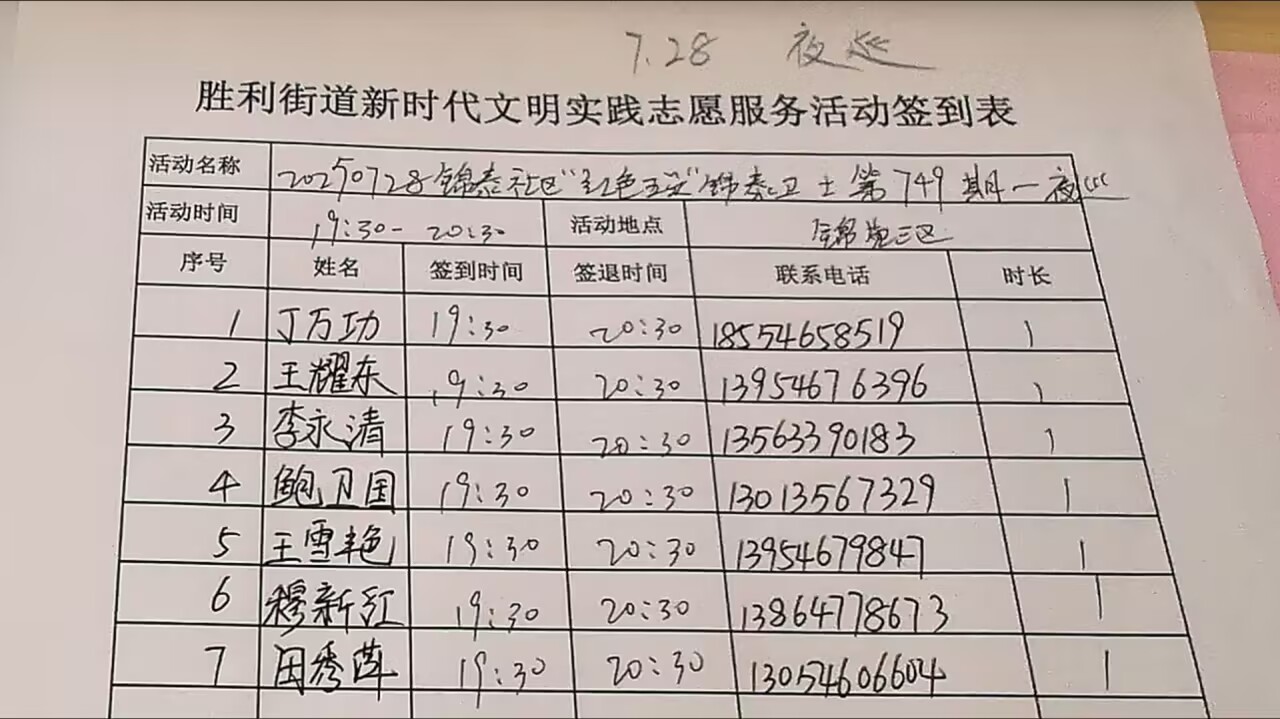 7.28 夜巡
胜利街道新时代文明实践志愿服务活动签到表
活动名称 20250728锦泰社区"红色五义"锦泰卫士第749期一夜巡
活动时间 19:30-20:30 活动地点 锦苑三区
序号 姓名 签到时间 签退时间 联系电话 时长
1 丁万功 19:30 20:30 18554658519 1
2 王耀东 19:30 20:30 13954676396 1
3 李永清 19:30 20:30 13563390183 1
4 鲍卫国 19:30 20:30 13013567329 1
5 王雪艳 19:30 20:30 13954679847 1
6 穆新红 19:30 20:30 13864778673 1
7 田秀萍 19:30 20:30 13054606604 1